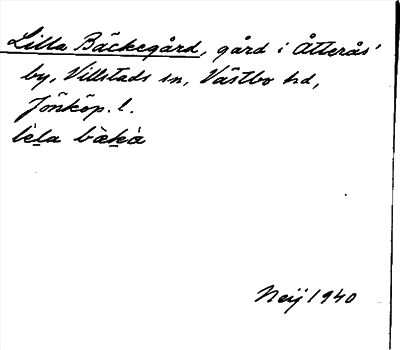 Lilla Bäckegård, gård i Åtterås'
by, Villstads sn, Västbo hd,
Jönköp. l.
lèḻa bàḵà
Neij 1940